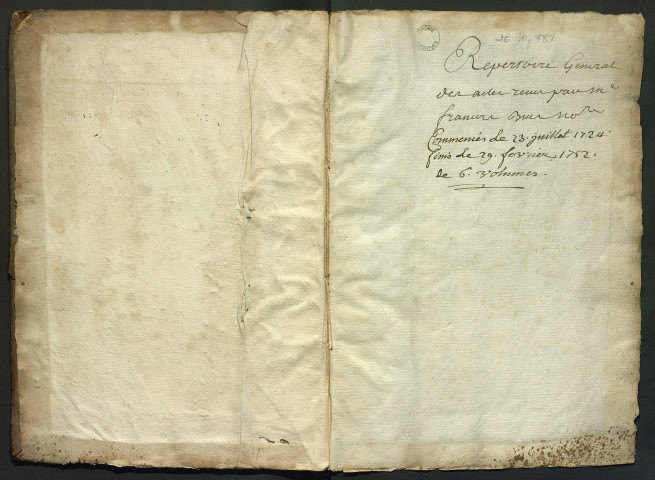 Repertoire General
des actes receus par Me
francois nore
Commencés le 23. juillet 1724.
finis le 29. fevrier 1752.
de 6. volumes.